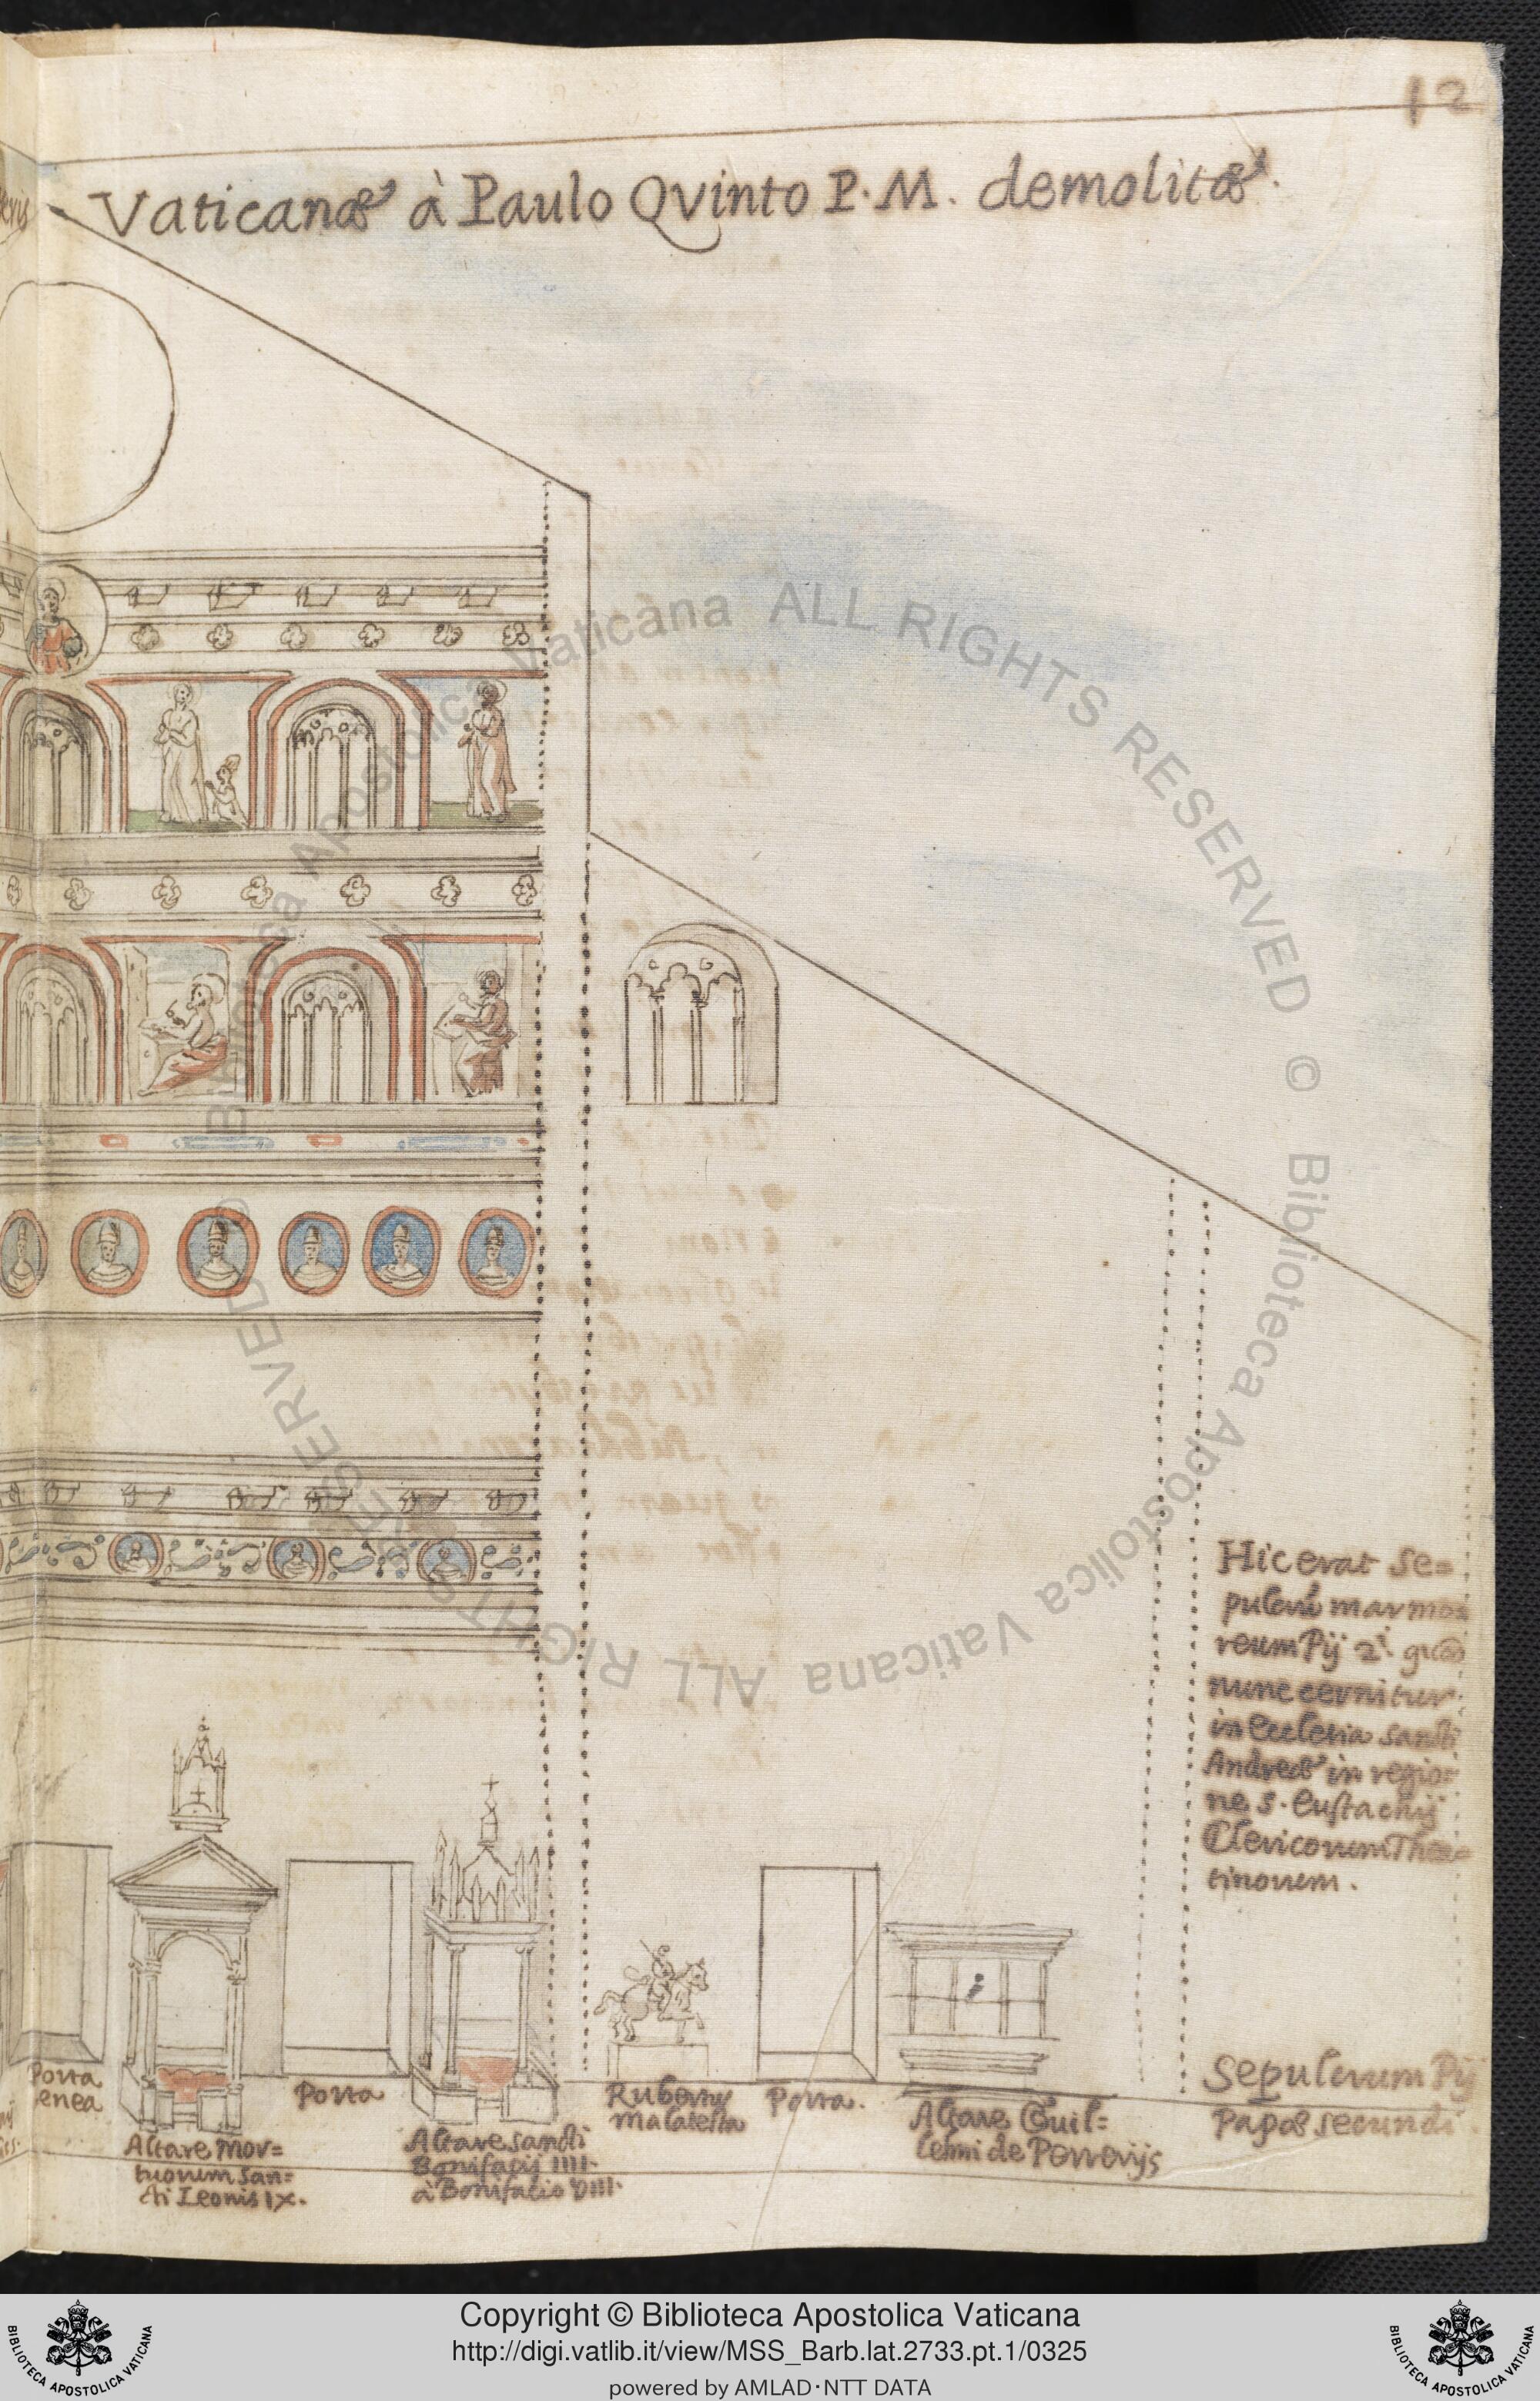 12
Vaticanæ à Paulo Qvinto P. M. demolitæ.
Hic erat se=
pulcrū marmo=
reum Pij 2.i
nunc cernitur
in Ecclesia sancti
Andreæ in regio=
ne S. Eustachij
Clericorum Thea=
tinorum.
Porta
enea
Altare Mor=
tuorum san=
cti Leonis IX.
Porta
Altare sancti
Bonifacij IIII.
à Bonifacio VIII.
Rubertus
Malatesta
Porta.
Altare Guil=
lelmi de Perrerijs
Sepulcrum Pij
Papæ secundi.
Biblioteca Apostolica Vaticana ALL RIGHTS RESERVED ©
Biblioteca Apostolica Vaticana ALL RIGHTS RESERVED ©
Copyright © Biblioteca Apostolica Vaticana
http://digi.vatlib.it/view/MSS_Barb.lat.2733.pt.1/0325
powered by AMLAD·NTT DATA
BIBLIOTECA APOSTOLICA VATICANA
BIBLIOTECA APOSTOLICA VATICANA